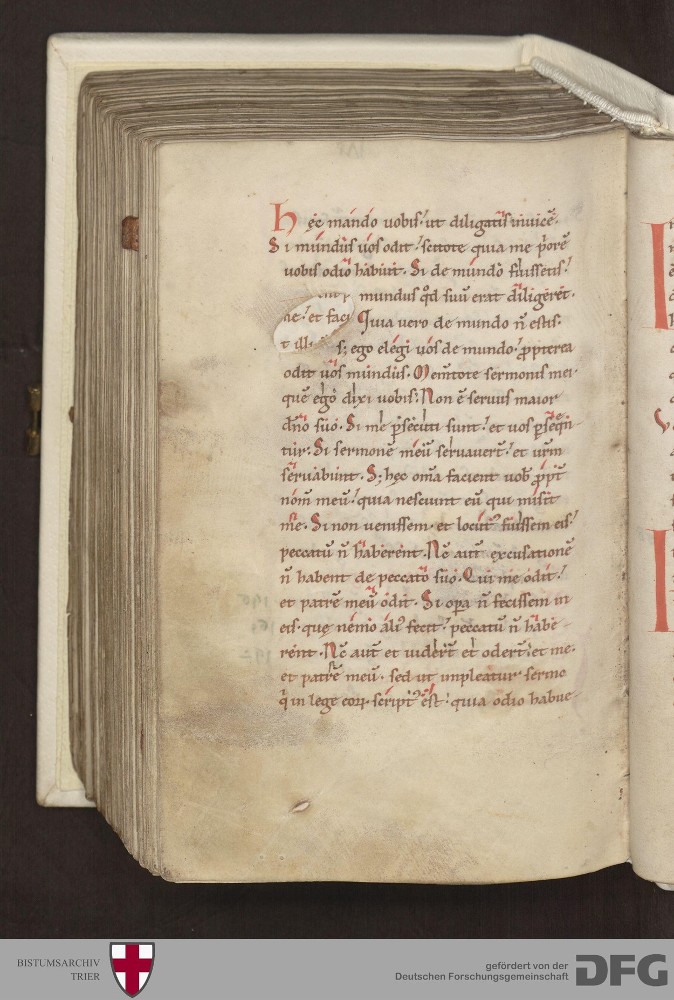 Hęc mando uobis. ut diligatis inuicē.
Si mundus uos odit. scitote quia me pͥorē
uobis odio habuit. Si de mundo fuissetis.
mundus qd̄ suū erat diligeret.
et faci Quia uero de mundo n̄ estis.
s; ego elegi uos de mundo. ꝓpterea
odit uos mundus. Mem̄tote sermonis mei
quē ego dixi uobis. Non ē seruus maior
dn̄o suo. Si me ꝑsecuti sunt. et uos ꝑseqn̄
tur. Si sermonē meū seruauer̄t. et ur̄m
seruabunt. S; hęc om̄a facient uob̄ ꝓpt̄
nom̄ meū. quia nesciunt eū qui misit
me. Si non uenissem. et locut᷒ fuissem eis.
peccatū n̄ haberent. Nc̄ aut̄ excusationē
n̄ habent de peccato suo. Qui me odit.
et patrē meū odit. Si oꝑa n̄ fecissem in
eis. quę nemo ali᷒ fecit. peccatū n̄ habe
rent. Nc̄ aut̄ et uider̄t et oder̄t. et me.
et patrē meū. sed ut impleatur sermo
qͥ in lege eoꝝ script᷒ est. quia odio habue
BISTUMSARCHIV
TRIER
gefördert von der
Deutschen Forschungsgemeinschaft
DFG